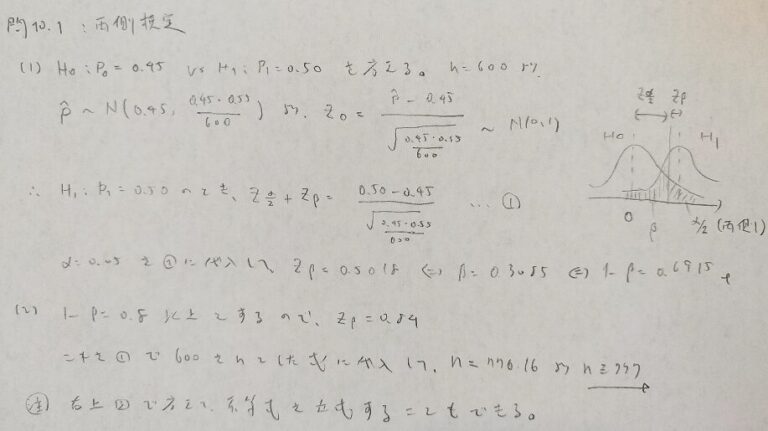 問10.1：両側検定
(1) H₀：P₀ = 0.45 vs H₁：P₁ = 0.50 を考える。n = 600 より、
p̂ ~ N(0.45, 0.45・0.55/600) より、Z₀ = (p̂ - 0.45)/√(0.45・0.55/600) ~ N(0,1)
∴ H₁：P₁ = 0.50 のとき、Zα/2 + Zβ = (0.50 - 0.45)/√(0.45・0.55/600) … ①
α = 0.05 を①に代入して、Zβ = 0.5018 ⇔ β = 0.3085 ⇔ 1 - β = 0.6915
(2) 1 - β = 0.8 以上とするので、Zβ = 0.84
これを①で 600 を n とした式に代入して、n = 776.16 より n ≧ 777
(注) 右上図で考えて、不等式を立式することもできる。
Zα/2 Zβ
H₀ H₁
0 β α/2 (両側)